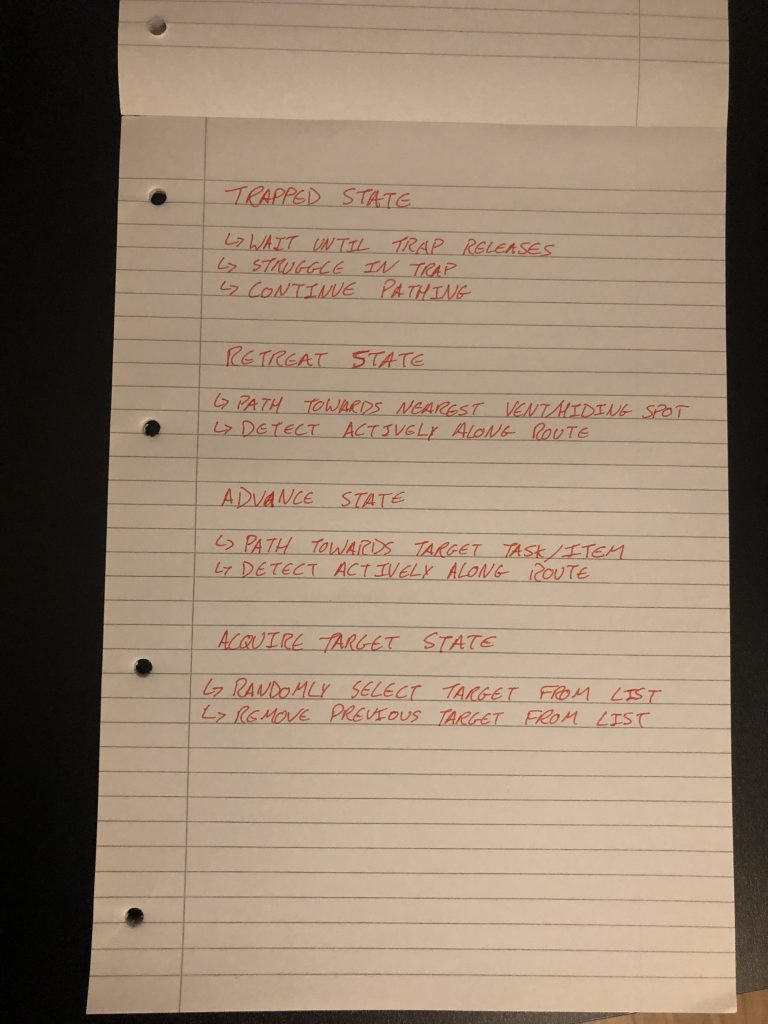 TRAPPED STATE
↳ WAIT UNTIL TRAP RELEASES
↳ STRUGGLE IN TRAP
↳ CONTINUE PATHING
RETREAT STATE
↳ PATH TOWARDS NEAREST VENT/HIDING SPOT
↳ DETECT ACTIVELY ALONG ROUTE
ADVANCE STATE
↳ PATH TOWARDS TARGET TASK/ITEM
↳ DETECT ACTIVELY ALONG ROUTE
ACQUIRE TARGET STATE
↳ RANDOMLY SELECT TARGET FROM LIST
↳ REMOVE PREVIOUS TARGET FROM LIST